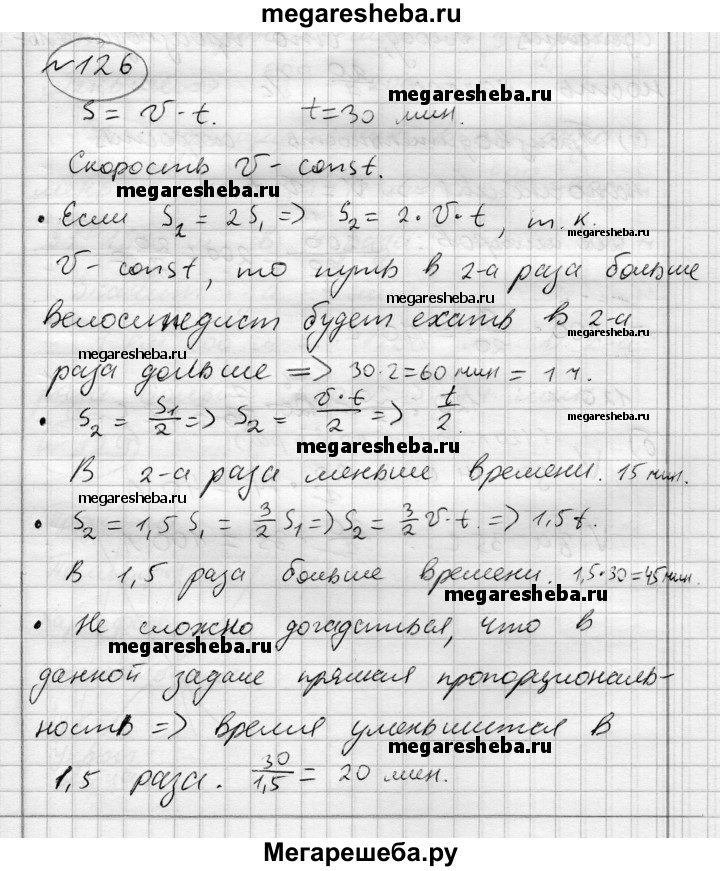 megaresheba.ru
№126
S = v·t. t=30 мин.
megaresheba.ru
Скорость v - const.
megaresheba.ru
• Если S₂ = 2S₁ => S₂ = 2·v·t, т.к.
megaresheba.ru
v - const, то путь в 2-а раза больше
megaresheba.ru
велосипедист будет ехать в 2-а
megaresheba.ru
раза дольше => 30·2=60 мин = 1 ч.
• S₂ = S₁/2 => S₂ = v·t/2 => t/2.
megaresheba.ru
megaresheba.ru
В 2-а раза меньше времени. 15 мин.
megaresheba.ru
• S₂ = 1,5 S₁ = 3/2 S₁ => S₂ = 3/2 v·t. => 1,5t.
В 1,5 раза больше времени. 1,5·30=45 мин.
megaresheba.ru
• Не сложно догадаться, что в
megaresheba.ru
данной задаче прямая пропорциональ-
ность => время уменьшится в
megaresheba.ru
1,5 раза. 30/1,5 = 20 мин.
Мегарешеба.ру